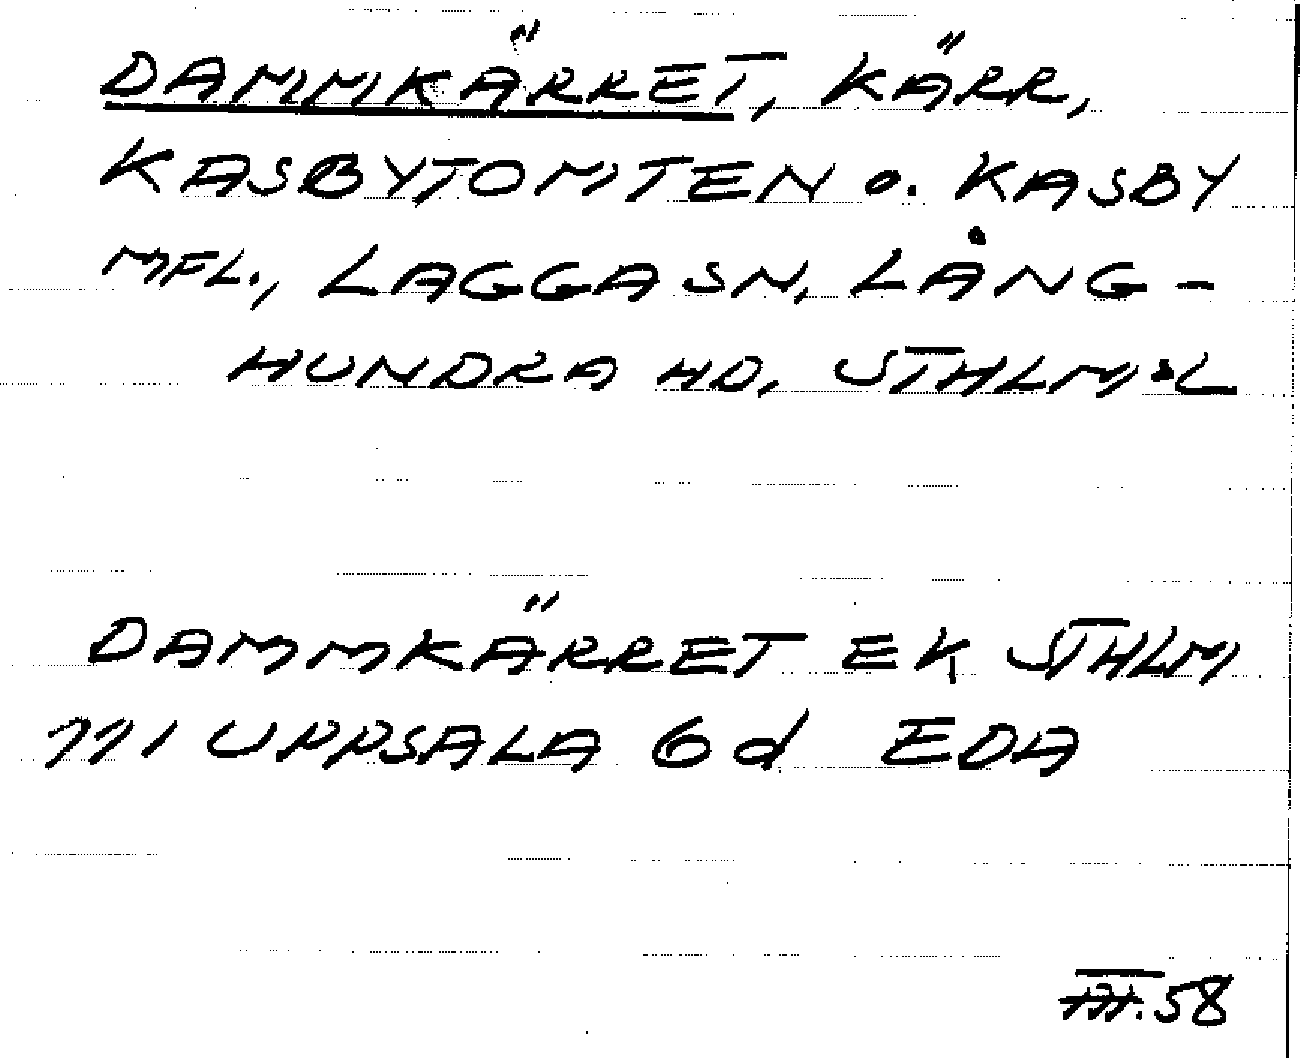 DAMMKÄRRET, KÄRR,
KASBYTOMTEN o. KASBY
MFL., LAGGA SN, LÅNG-
HUNDRA HD, STHLM:L
DAMMKÄRRET EK STHLM
111 UPPSALA 6d EDA
58